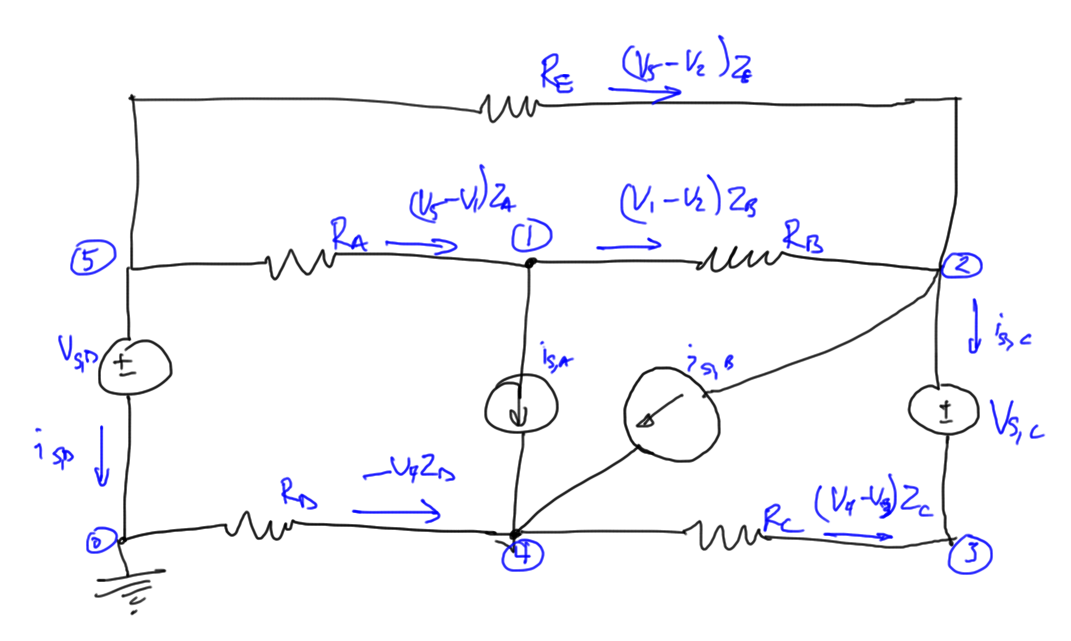 R_E (V_5-V_2)Z_E
(V_5-V_1)Z_A (V_1-V_2)Z_B
R_A ① R_B
⑤ ②
V_{S,D} ± i_{s,A} i_{s,B} i_{s,C}
± V_{S,C}
i_{SD}
R_D -V_4Z_D R_C (V_4-V_3)Z_C
⓪ ④ ③